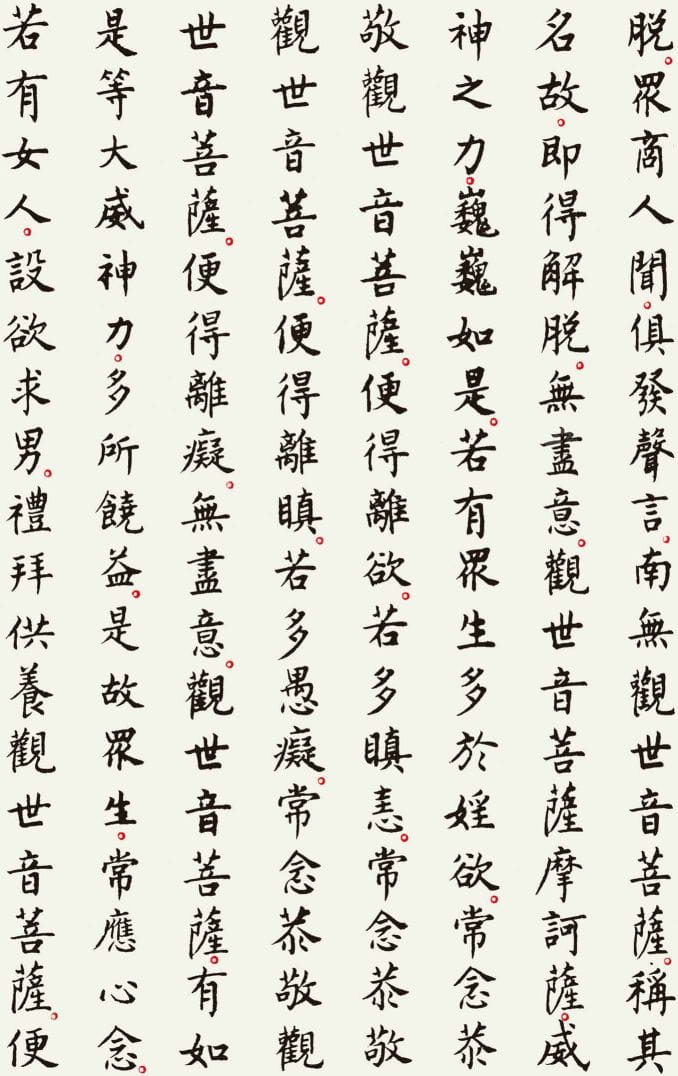 脫。眾商人聞。俱發聲言。南無觀世音菩薩。稱其
名故。即得解脫。無盡意。觀世音菩薩摩訶薩。威
神之力。巍巍如是。若有眾生多於婬欲。常念恭
敬觀世音菩薩。便得離欲。若多瞋恚。常念恭敬
觀世音菩薩。便得離瞋。若多愚癡。常念恭敬觀
世音菩薩。便得離癡。無盡意。觀世音菩薩。有如
是等大威神力。多所饒益。是故眾生。常應心念。
若有女人。設欲求男。禮拜供養觀世音菩薩。便